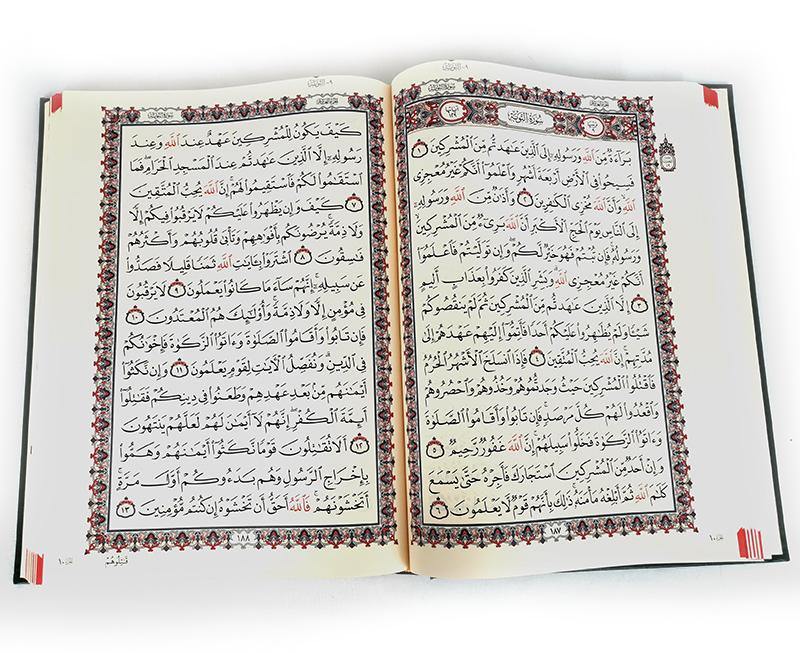 ٩-التوبة
سورة التوبة
الجزء العاشر
سورة التوبة
بَرَآءَةٌ مِّنَ ٱللَّهِ وَرَسُولِهِۦٓ إِلَى ٱلَّذِينَ عَـٰهَدتُّم مِّنَ ٱلْمُشْرِكِينَ ١
فَسِيحُوا۟ فِى ٱلْأَرْضِ أَرْبَعَةَ أَشْهُرٍ وَٱعْلَمُوٓا۟ أَنَّكُمْ غَيْرُ مُعْجِزِى
ٱللَّهِ وَأَنَّ ٱللَّهَ مُخْزِى ٱلْكَـٰفِرِينَ ٢ وَأَذَٰنٌ مِّنَ ٱللَّهِ وَرَسُولِهِۦٓ
إِلَى ٱلنَّاسِ يَوْمَ ٱلْحَجِّ ٱلْأَكْبَرِ أَنَّ ٱللَّهَ بَرِىٓءٌ مِّنَ ٱلْمُشْرِكِينَ
وَرَسُولُهُۥ فَإِن تُبْتُمْ فَهُوَ خَيْرٌ لَّكُمْ وَإِن تَوَلَّيْتُمْ فَٱعْلَمُوٓا۟
أَنَّكُمْ غَيْرُ مُعْجِزِى ٱللَّهِ وَبَشِّرِ ٱلَّذِينَ كَفَرُوا۟ بِعَذَابٍ أَلِيمٍ
٣ إِلَّا ٱلَّذِينَ عَـٰهَدتُّم مِّنَ ٱلْمُشْرِكِينَ ثُمَّ لَمْ يَنقُصُوكُمْ
شَيْـًٔا وَلَمْ يُظَـٰهِرُوا۟ عَلَيْكُمْ أَحَدًا فَأَتِمُّوٓا۟ إِلَيْهِمْ عَهْدَهُمْ إِلَىٰ
مُدَّتِهِمْ إِنَّ ٱللَّهَ يُحِبُّ ٱلْمُتَّقِينَ ٤ فَإِذَا ٱنسَلَخَ ٱلْأَشْهُرُ ٱلْحُرُمُ
فَٱقْتُلُوا۟ ٱلْمُشْرِكِينَ حَيْثُ وَجَدتُّمُوهُمْ وَخُذُوهُمْ وَٱحْصُرُوهُمْ
وَٱقْعُدُوا۟ لَهُمْ كُلَّ مَرْصَدٍ فَإِن تَابُوا۟ وَأَقَامُوا۟ ٱلصَّلَوٰةَ
وَءَاتَوُا۟ ٱلزَّكَوٰةَ فَخَلُّوا۟ سَبِيلَهُمْ إِنَّ ٱللَّهَ غَفُورٌ رَّحِيمٌ ٥
وَإِنْ أَحَدٌ مِّنَ ٱلْمُشْرِكِينَ ٱسْتَجَارَكَ فَأَجِرْهُ حَتَّىٰ يَسْمَعَ
كَلَـٰمَ ٱللَّهِ ثُمَّ أَبْلِغْهُ مَأْمَنَهُۥ ذَٰلِكَ بِأَنَّهُمْ قَوْمٌ لَّا يَعْلَمُونَ ٦
١٨٧
٩-التوبة
سورة التوبة
الجزء العاشر
كَيْفَ يَكُونُ لِلْمُشْرِكِينَ عَهْدٌ عِندَ ٱللَّهِ وَعِندَ
رَسُولِهِۦٓ إِلَّا ٱلَّذِينَ عَـٰهَدتُّمْ عِندَ ٱلْمَسْجِدِ ٱلْحَرَامِ فَمَا
ٱسْتَقَـٰمُوا۟ لَكُمْ فَٱسْتَقِيمُوا۟ لَهُمْ إِنَّ ٱللَّهَ يُحِبُّ ٱلْمُتَّقِينَ
٧ كَيْفَ وَإِن يَظْهَرُوا۟ عَلَيْكُمْ لَا يَرْقُبُوا۟ فِيكُمْ إِلًّا
وَلَا ذِمَّةً يُرْضُونَكُم بِأَفْوَٰهِهِمْ وَتَأْبَىٰ قُلُوبُهُمْ وَأَكْثَرُهُمْ
فَـٰسِقُونَ ٨ ٱشْتَرَوْا۟ بِـَٔايَـٰتِ ٱللَّهِ ثَمَنًا قَلِيلًا فَصَدُّوا۟
عَن سَبِيلِهِۦٓ إِنَّهُمْ سَآءَ مَا كَانُوا۟ يَعْمَلُونَ ٩ لَا يَرْقُبُونَ
فِى مُؤْمِنٍ إِلًّا وَلَا ذِمَّةً وَأُو۟لَـٰٓئِكَ هُمُ ٱلْمُعْتَدُونَ ١٠
فَإِن تَابُوا۟ وَأَقَامُوا۟ ٱلصَّلَوٰةَ وَءَاتَوُا۟ ٱلزَّكَوٰةَ فَإِخْوَٰنُكُمْ
فِى ٱلدِّينِ وَنُفَصِّلُ ٱلْـَٔايَـٰتِ لِقَوْمٍ يَعْلَمُونَ ١١ وَإِن نَّكَثُوٓا۟
أَيْمَـٰنَهُم مِّنۢ بَعْدِ عَهْدِهِمْ وَطَعَنُوا۟ فِى دِينِكُمْ فَقَـٰتِلُوٓا۟
أَئِمَّةَ ٱلْكُفْرِ إِنَّهُمْ لَآ أَيْمَـٰنَ لَهُمْ لَعَلَّهُمْ يَنتَهُونَ
١٢ أَلَا تُقَـٰتِلُونَ قَوْمًا نَّكَثُوٓا۟ أَيْمَـٰنَهُمْ وَهَمُّوا۟
بِإِخْرَاجِ ٱلرَّسُولِ وَهُم بَدَءُوكُمْ أَوَّلَ مَرَّةٍ
أَتَخْشَوْنَهُمْ فَٱللَّهُ أَحَقُّ أَن تَخْشَوْهُ إِن كُنتُم مُّؤْمِنِينَ ١٣
١٨٨
قَـٰتِلُوهُمْ